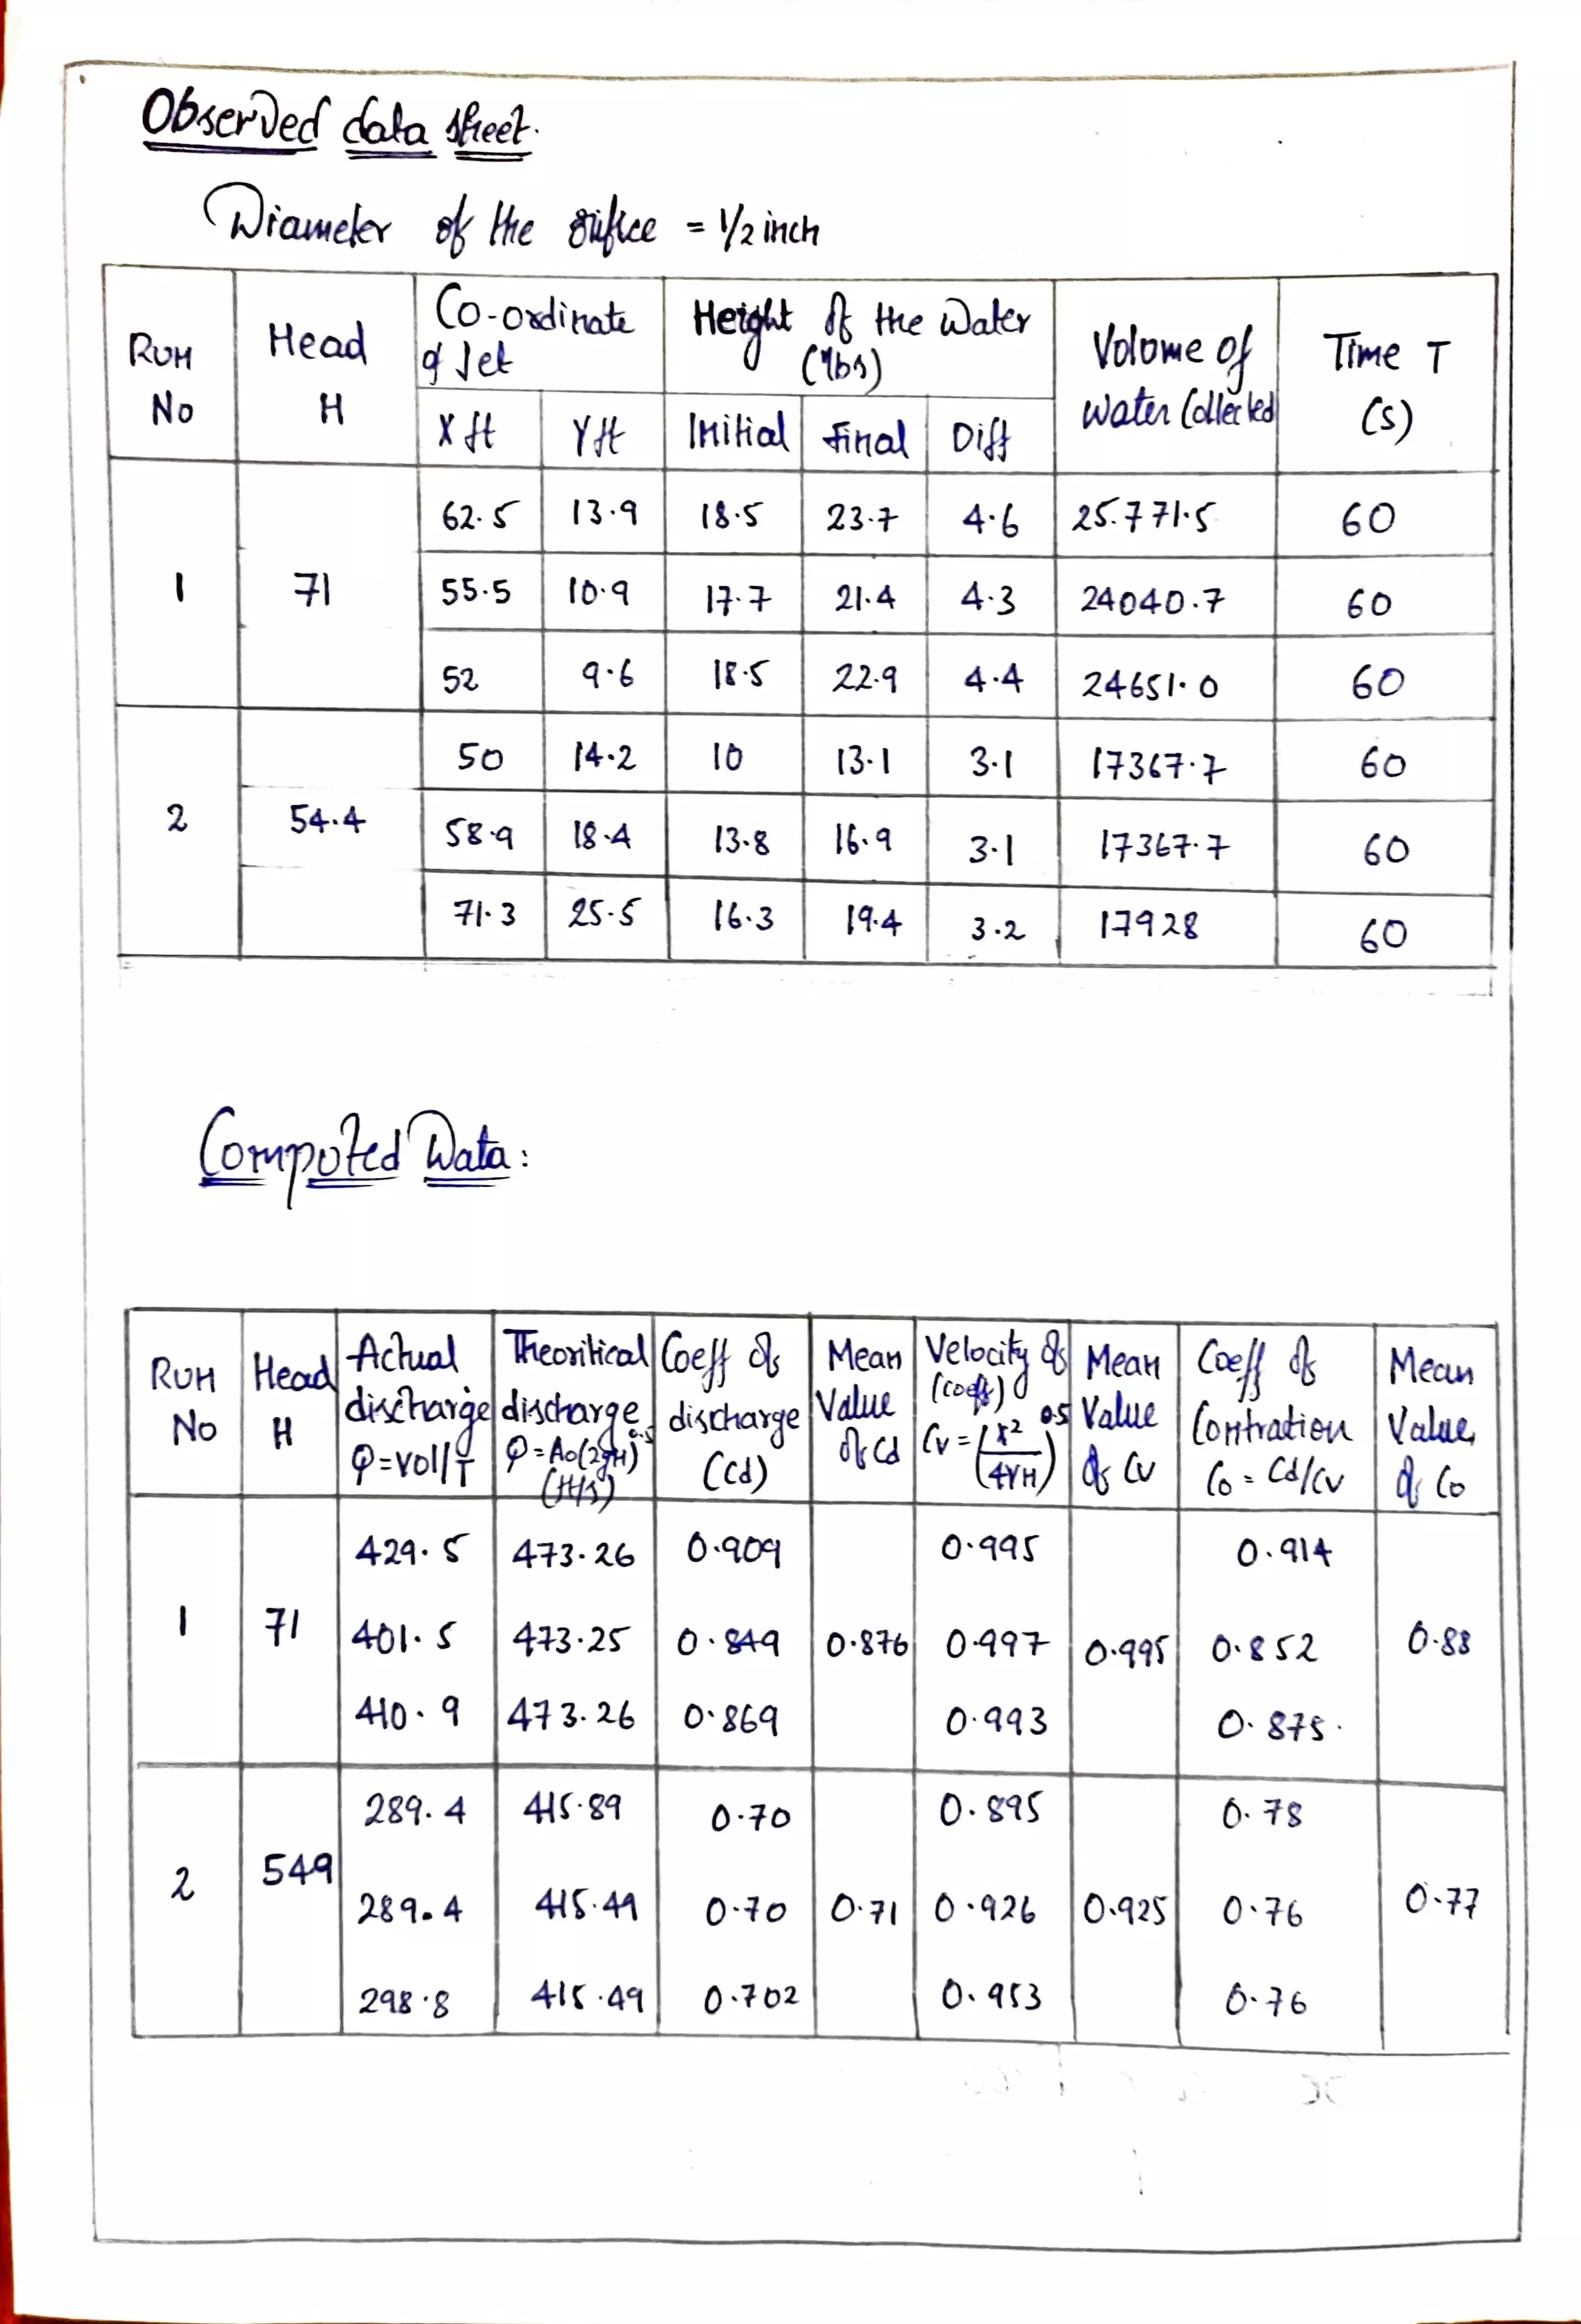 Observed data sheet.
Diameter of the orifice = 1/2 inch
Run No | Head H | Co-ordinate of Jet | Height of the Water | Volume of water Collected | Time T (s)
X ft | Y ft | Initial | Final | Diff
62.5 | 13.9 | 18.5 | 23.7 | 4.6 | 25.771.5 | 60
1 | 71 | 55.5 | 10.9 | 17.7 | 21.4 | 4.3 | 24040.7 | 60
52 | 9.6 | 18.5 | 22.9 | 4.4 | 24651.0 | 60
50 | 14.2 | 10 | 13.1 | 3.1 | 17367.7 | 60
2 | 54.4 | 58.9 | 18.4 | 13.8 | 16.9 | 3.1 | 17367.7 | 60
71.3 | 25.5 | 16.3 | 19.4 | 3.2 | 17928 | 60
Computed Data:
Run No | Head H | Actual discharge Q=Vol/T | Theoritical discharge Q=Ao(2gH)^0.5 | Coeff of discharge (Cd) | Mean Value of Cd | Velocity of (coeff) Cv = (X^2/4YH)^0.5 | Mean Value of Cv | Coeff of Contration Co = Cd/Cv | Mean Value of Co
429.5 | 473.26 | 0.909 | 0.995 | 0.914
1 | 71 | 401.5 | 473.25 | 0.849 | 0.876 | 0.997 | 0.995 | 0.852 | 0.88
410.9 | 473.26 | 0.869 | 0.993 | 0.875.
289.4 | 415.89 | 0.70 | 0.895 | 0.78
2 | 549 | 289.4 | 415.49 | 0.70 | 0.71 | 0.926 | 0.925 | 0.76 | 0.77
298.8 | 415.49 | 0.702 | 0.953 | 0.76